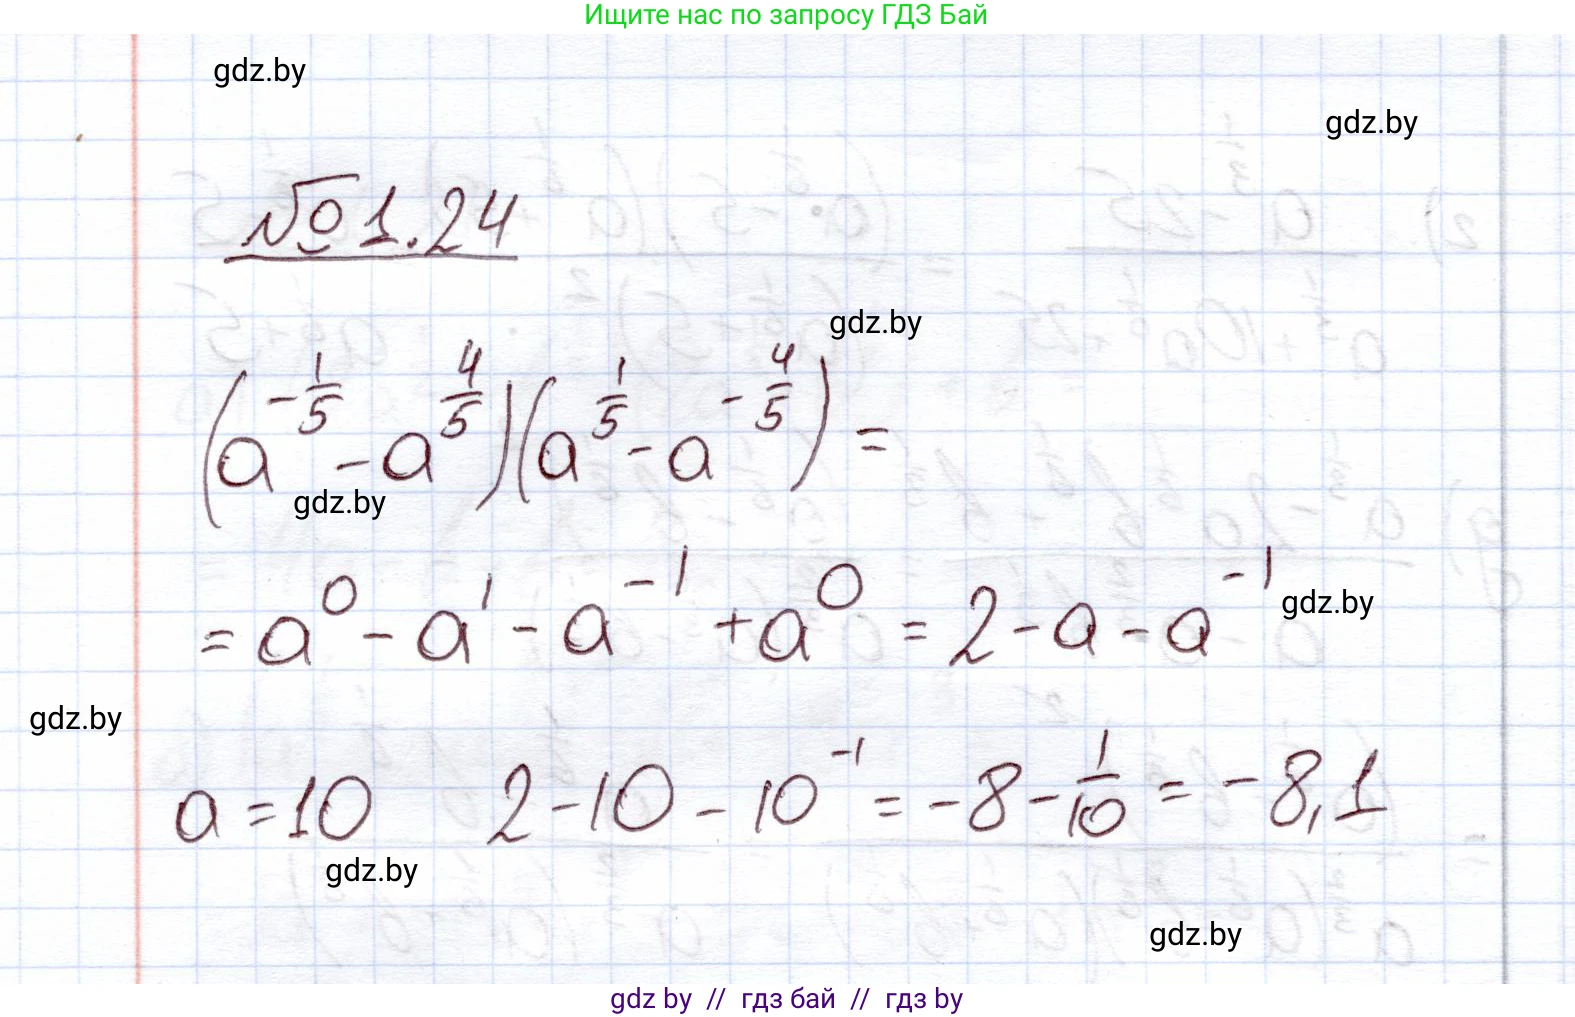 Ищите нас по запросу ГДЗ Бай
gdz.by
gdz.by
№ 1.24
gdz.by
(a^{-\frac{1}{5}} - a^{\frac{4}{5}})(a^{\frac{1}{5}} - a^{-\frac{4}{5}}) =
gdz.by
= a^0 - a^1 - a^{-1} + a^0 = 2 - a - a^{-1}
gdz.by
gdz.by
a = 10 2 - 10 - 10^{-1} = -8 - \frac{1}{10} = -8,1
gdz.by
gdz.by
gdz by // гдз бай // гдз by